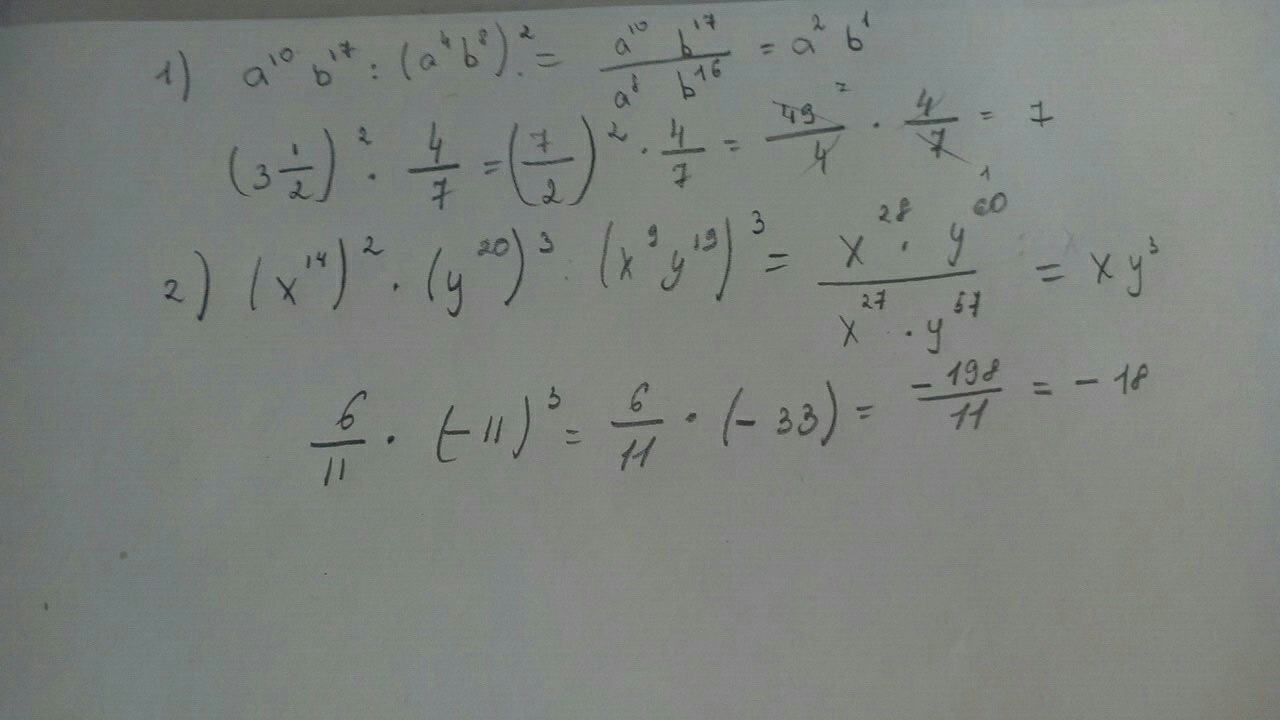 1) a¹⁰ b¹⁷ : (a⁴b⁸)² = a¹⁰ b¹⁷ / a⁸ b¹⁶ = a² b¹
(3 1/2)² · 4/7 = (7/2)² · 4/7 = 49 7 / 4 · 4 / 7 1 = 7
2) (x¹⁴)² · (y²⁰)³ : (x⁹y¹⁹)³ = x²⁸ · y⁶⁰ / x²⁷ · y⁵⁷ = x y³
6/11 · (-11)³ = 6/11 · (-33) = -198/11 = -18